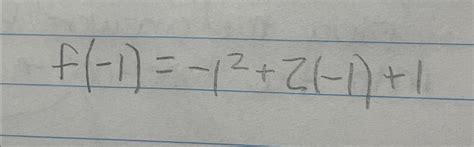 f(-1) = -1² + 2(-1) + 1